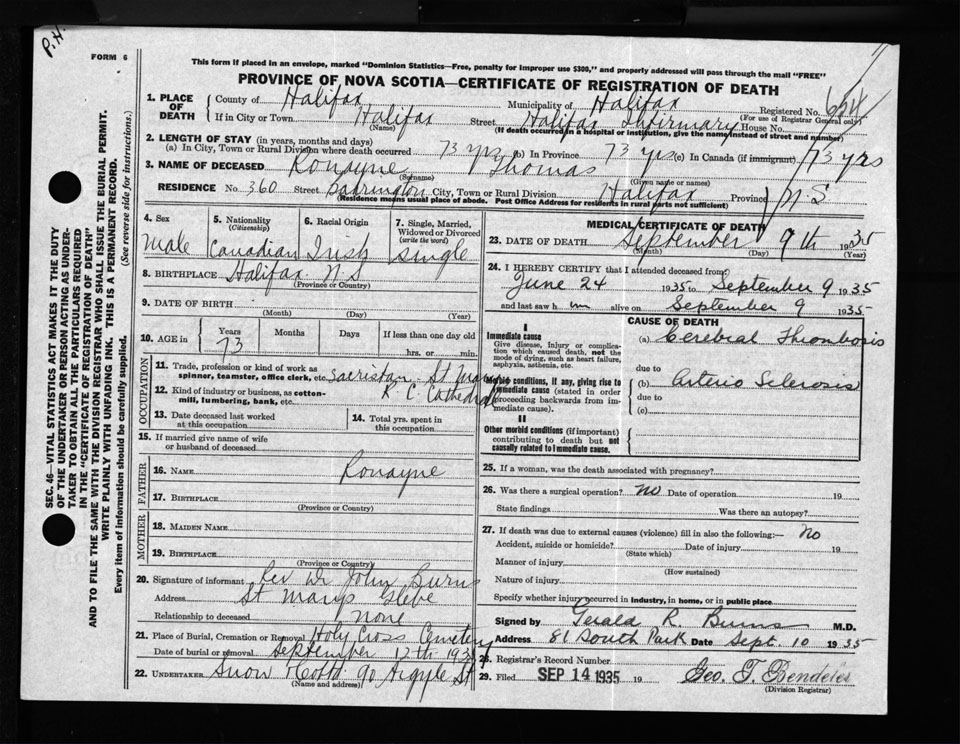 P.H.
FORM 6
This form if placed in an envelope, marked "Dominion Statistics—Free, penalty for improper use $300," and properly addressed will pass through the mail "FREE"
PROVINCE OF NOVA SCOTIA—CERTIFICATE OF REGISTRATION OF DEATH
SEC. 46—VITAL STATISTICS ACT MAKES IT THE DUTY
OF THE UNDERTAKER OR PERSON ACTING AS UNDER-
TAKER TO OBTAIN ALL THE PARTICULARS REQUIRED
IN THE "CERTIFICATE OF REGISTRATION OF DEATH"
AND TO FILE THE SAME WITH THE DIVISION REGISTRAR WHO SHALL ISSUE THE BURIAL PERMIT.
WRITE PLAINLY WITH UNFADING INK. THIS IS A PERMANENT RECORD.
Every item of information should be carefully supplied. (See reverse side for instructions.)
1. PLACE OF DEATH County of Halifax Municipality of Halifax Registered No.
(For use of Registrar General only)
If in City or Town Halifax Street Halifax Infirmary House No.
(Name) (If death occurred in a hospital or institution, give the name instead of street and number)
2. LENGTH OF STAY (in years, months and days)
(a) In City, Town or Rural Division where death occurred 73 yrs (b) In Province 73 yrs (c) In Canada (if immigrant) 73 yrs
3. NAME OF DECEASED Ronayne Thomas
(Surname) (Given name or names)
RESIDENCE No. 360 Street Barrington City, Town or Rural Division Halifax Province N.S
(Residence means usual place of abode. Post Office Address for residents in rural parts not sufficient)
4. Sex 5. Nationality (Citizenship) 6. Racial Origin 7. Single, Married, Widowed or Divorced (write the word)
Male Canadian Irish Single
8. BIRTHPLACE Halifax N.S
(Province or Country)
9. DATE OF BIRTH
(Month) (Day) (Year)
10. AGE in Years Months Days If less than one day old
73 hrs. or min.
OCCUPATION
11. Trade, profession or kind of work as spinner, teamster, office clerk, etc. Sacristan St Marys
12. Kind of industry or business, as cotton-mill, lumbering, bank, etc. R. C. Cathedral
13. Date deceased last worked at this occupation
14. Total yrs. spent in this occupation
15. If married give name of wife or husband of deceased
FATHER
16. NAME Ronayne
17. BIRTHPLACE
(Province or Country)
MOTHER
18. MAIDEN NAME
19. BIRTHPLACE
(Province or Country)
20. Signature of informant Rev Dr John Burns
Address St Marys Glebe
Relationship to deceased None
21. Place of Burial, Cremation or Removal Holy Cross Cemetery
Date of burial or removal September 12th 1935
22. UNDERTAKER Snow & Co Ltd 90 Argyle St
(Name and address)
MEDICAL CERTIFICATE OF DEATH
23. DATE OF DEATH September 9th 1935
(Month) (Day) (Year)
24. I HEREBY CERTIFY that I attended deceased from
June 24 1935 to September 9 1935
and last saw h im alive on September 9 1935
CAUSE OF DEATH
I
Immediate cause
Give disease, injury or complication which caused death, not the mode of dying, such as heart failure, asphyxia, asthenia, etc.
(a) Cerebral Thrombosis
due to
Morbid conditions, if any, giving rise to immediate cause (stated in order proceeding backwards from immediate cause).
(b) Arterio Sclerosis
due to
(c)
II
Other morbid conditions (if important) contributing to death but not causally related to immediate cause.
25. If a woman, was the death associated with pregnancy?
26. Was there a surgical operation? No Date of operation 19
State findings Was there an autopsy?
27. If death was due to external causes (violence) fill in also the following:— No
Accident, suicide or homicide? Date of injury 19
(State which)
Manner of injury
(How sustained)
Nature of injury
Specify whether injury occurred in industry, in home, or in public place
Signed by Gerald R. Burns M.D.
Address 81 South Park Date Sept. 10 1935
28. Registrar's Record Number
29. Filed SEP 14 1935 19
(Division Registrar)